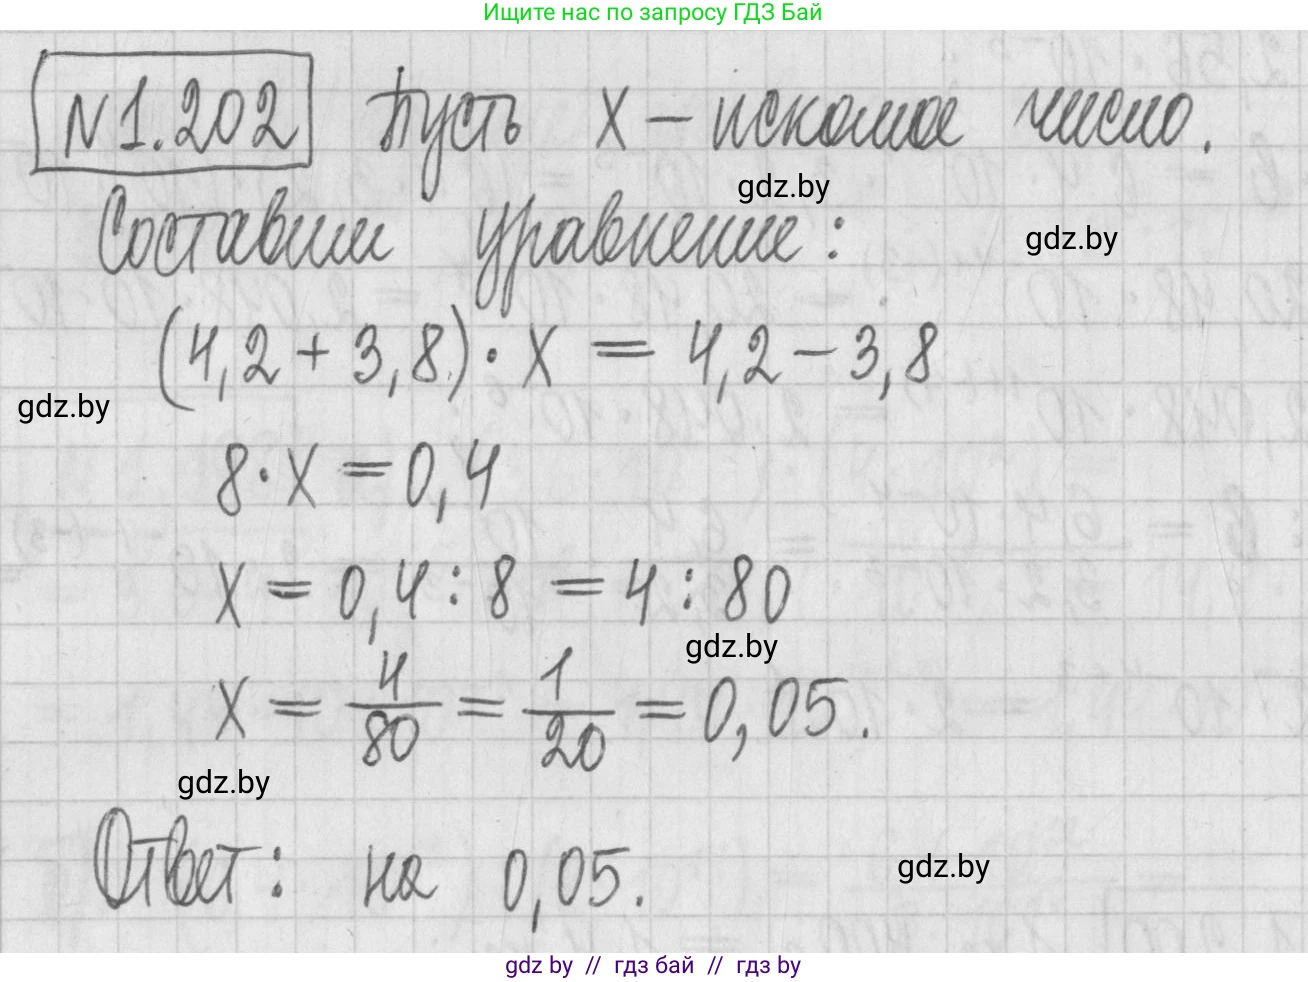 Ищите нас по запросу ГДЗ Бай
N 1.202 Пусть x – искомое число.
gdz.by
Составим уравнение:
gdz.by
(4,2 + 3,8) · x = 4,2 – 3,8
gdz.by
8 · x = 0,4
x = 0,4 : 8 = 4 : 80
gdz.by
x = 4/80 = 1/20 = 0,05.
gdz.by
Ответ: на 0,05.
gdz.by
gdz by // гдз бай // гдз by